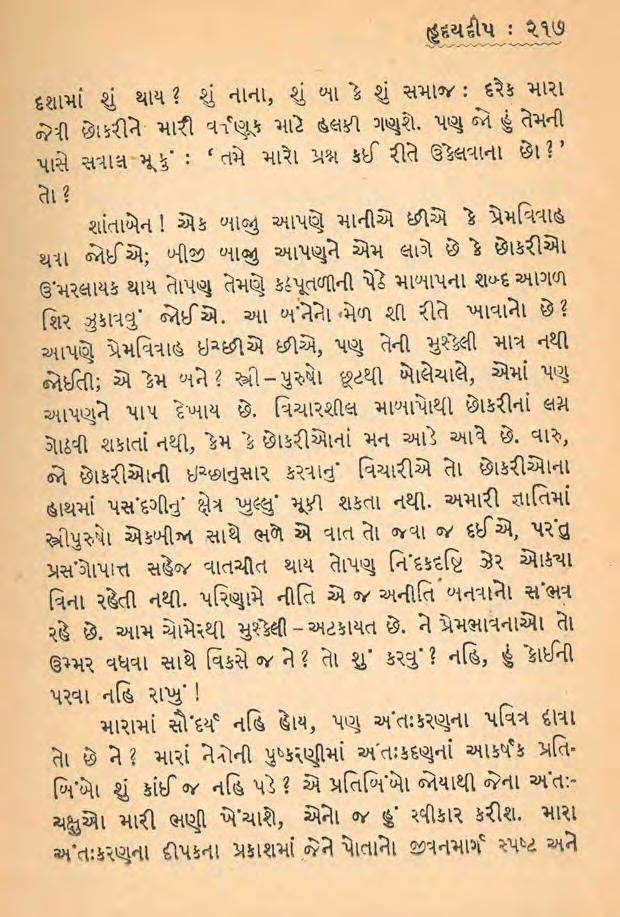 હૃદયદીપ : ૨૧૭
દશામાં શું થાય? શું નાના, શું બા કે શું સમાજ : દરેક મારા
જેવી છોકરીને મારી વર્ત્તણૂક માટે હલકી ગણશે. પણ જો હું તેમની
પાસે સવાલ મૂકું : ‘તમે મારો પ્રશ્ન કઈ રીતે ઉકેલવાના છો?’
તો?
શાંતાબેન! એક બાજુ આપણે માનીએ છીએ કે પ્રેમવિવાહ
થવા જોઈએ; બીજી બાજુ આપણને એમ લાગે છે કે છોકરીઓ
ઉંમરલાયક થાય તોપણ તેમણે કઠપૂતળીની પેઠે માબાપના શબ્દ આગળ
શિર ઝુકાવવું જોઈએ. આ બંનેનો મેળ શી રીતે ખાવાનો છે?
આપણે પ્રેમવિવાહ ઇચ્છીએ છીએ, પણ તેની મુશ્કેલી માત્ર નથી
જોઈતી; એ કેમ બને? સ્ત્રી–પુરુષો છૂટથી બોલેચાલે, એમાં પણ
આપણને પાપ દેખાય છે. વિચારશીલ માબાપોથી છોકરીનાં લગ્ન
ગોઠવી શકાતાં નથી, કેમ કે છોકરીઓનાં મન આડે આવે છે. વારુ,
જો છોકરીઓની ઇચ્છાનુસાર કરવાનું વિચારીએ તો છોકરીઓના
હાથમાં પસંદગીનું ક્ષેત્ર ખુલ્લું મૂકી શકતા નથી. અમારી જ્ઞાતિમાં
સ્ત્રીપુરુષો એકબીજા સાથે ભળે એ વાત તો જવા જ દઈએ, પરંતુ
પ્રસંગોપાત્ત સહેજ વાતચીત થાય તોપણ નિંદકદૃષ્ટિ ઝેર ઓક્યા
વિના રહેતી નથી. પરિણામે નીતિ એ જ અનીતિ બનવાનો સંભવ
રહે છે. આમ ચોમેરથી મુશ્કેલી–અટકાયત છે. ને પ્રેમભાવનાઓ તો
ઉમ્મર વધવા સાથે વિકસે જ ને? તો શું કરવું? નહિ, હું કોઈની
પરવા નહિ રાખું!
મારામાં સૌંદર્ય નહિ હોય, પણ અંતઃકરણના પવિત્ર દાવા
તો છે ને? મારાં નેત્રોની પુષ્કરણીમાં અંતઃકદણનાં આકર્ષક પ્રતિ-
બિંબો શું કાંઈ જ નહિ પડે? એ પ્રતિબિંબો જોયાથી જેના અંતઃ-
ચક્ષુઓ મારી ભણી ખેંચાશે, એનો જ હું સ્વીકાર કરીશ. મારા
અંતઃકરણના દીપકના પ્રકાશમાં જેને પોતાનો જીવનમાર્ગ સ્પષ્ટ અને